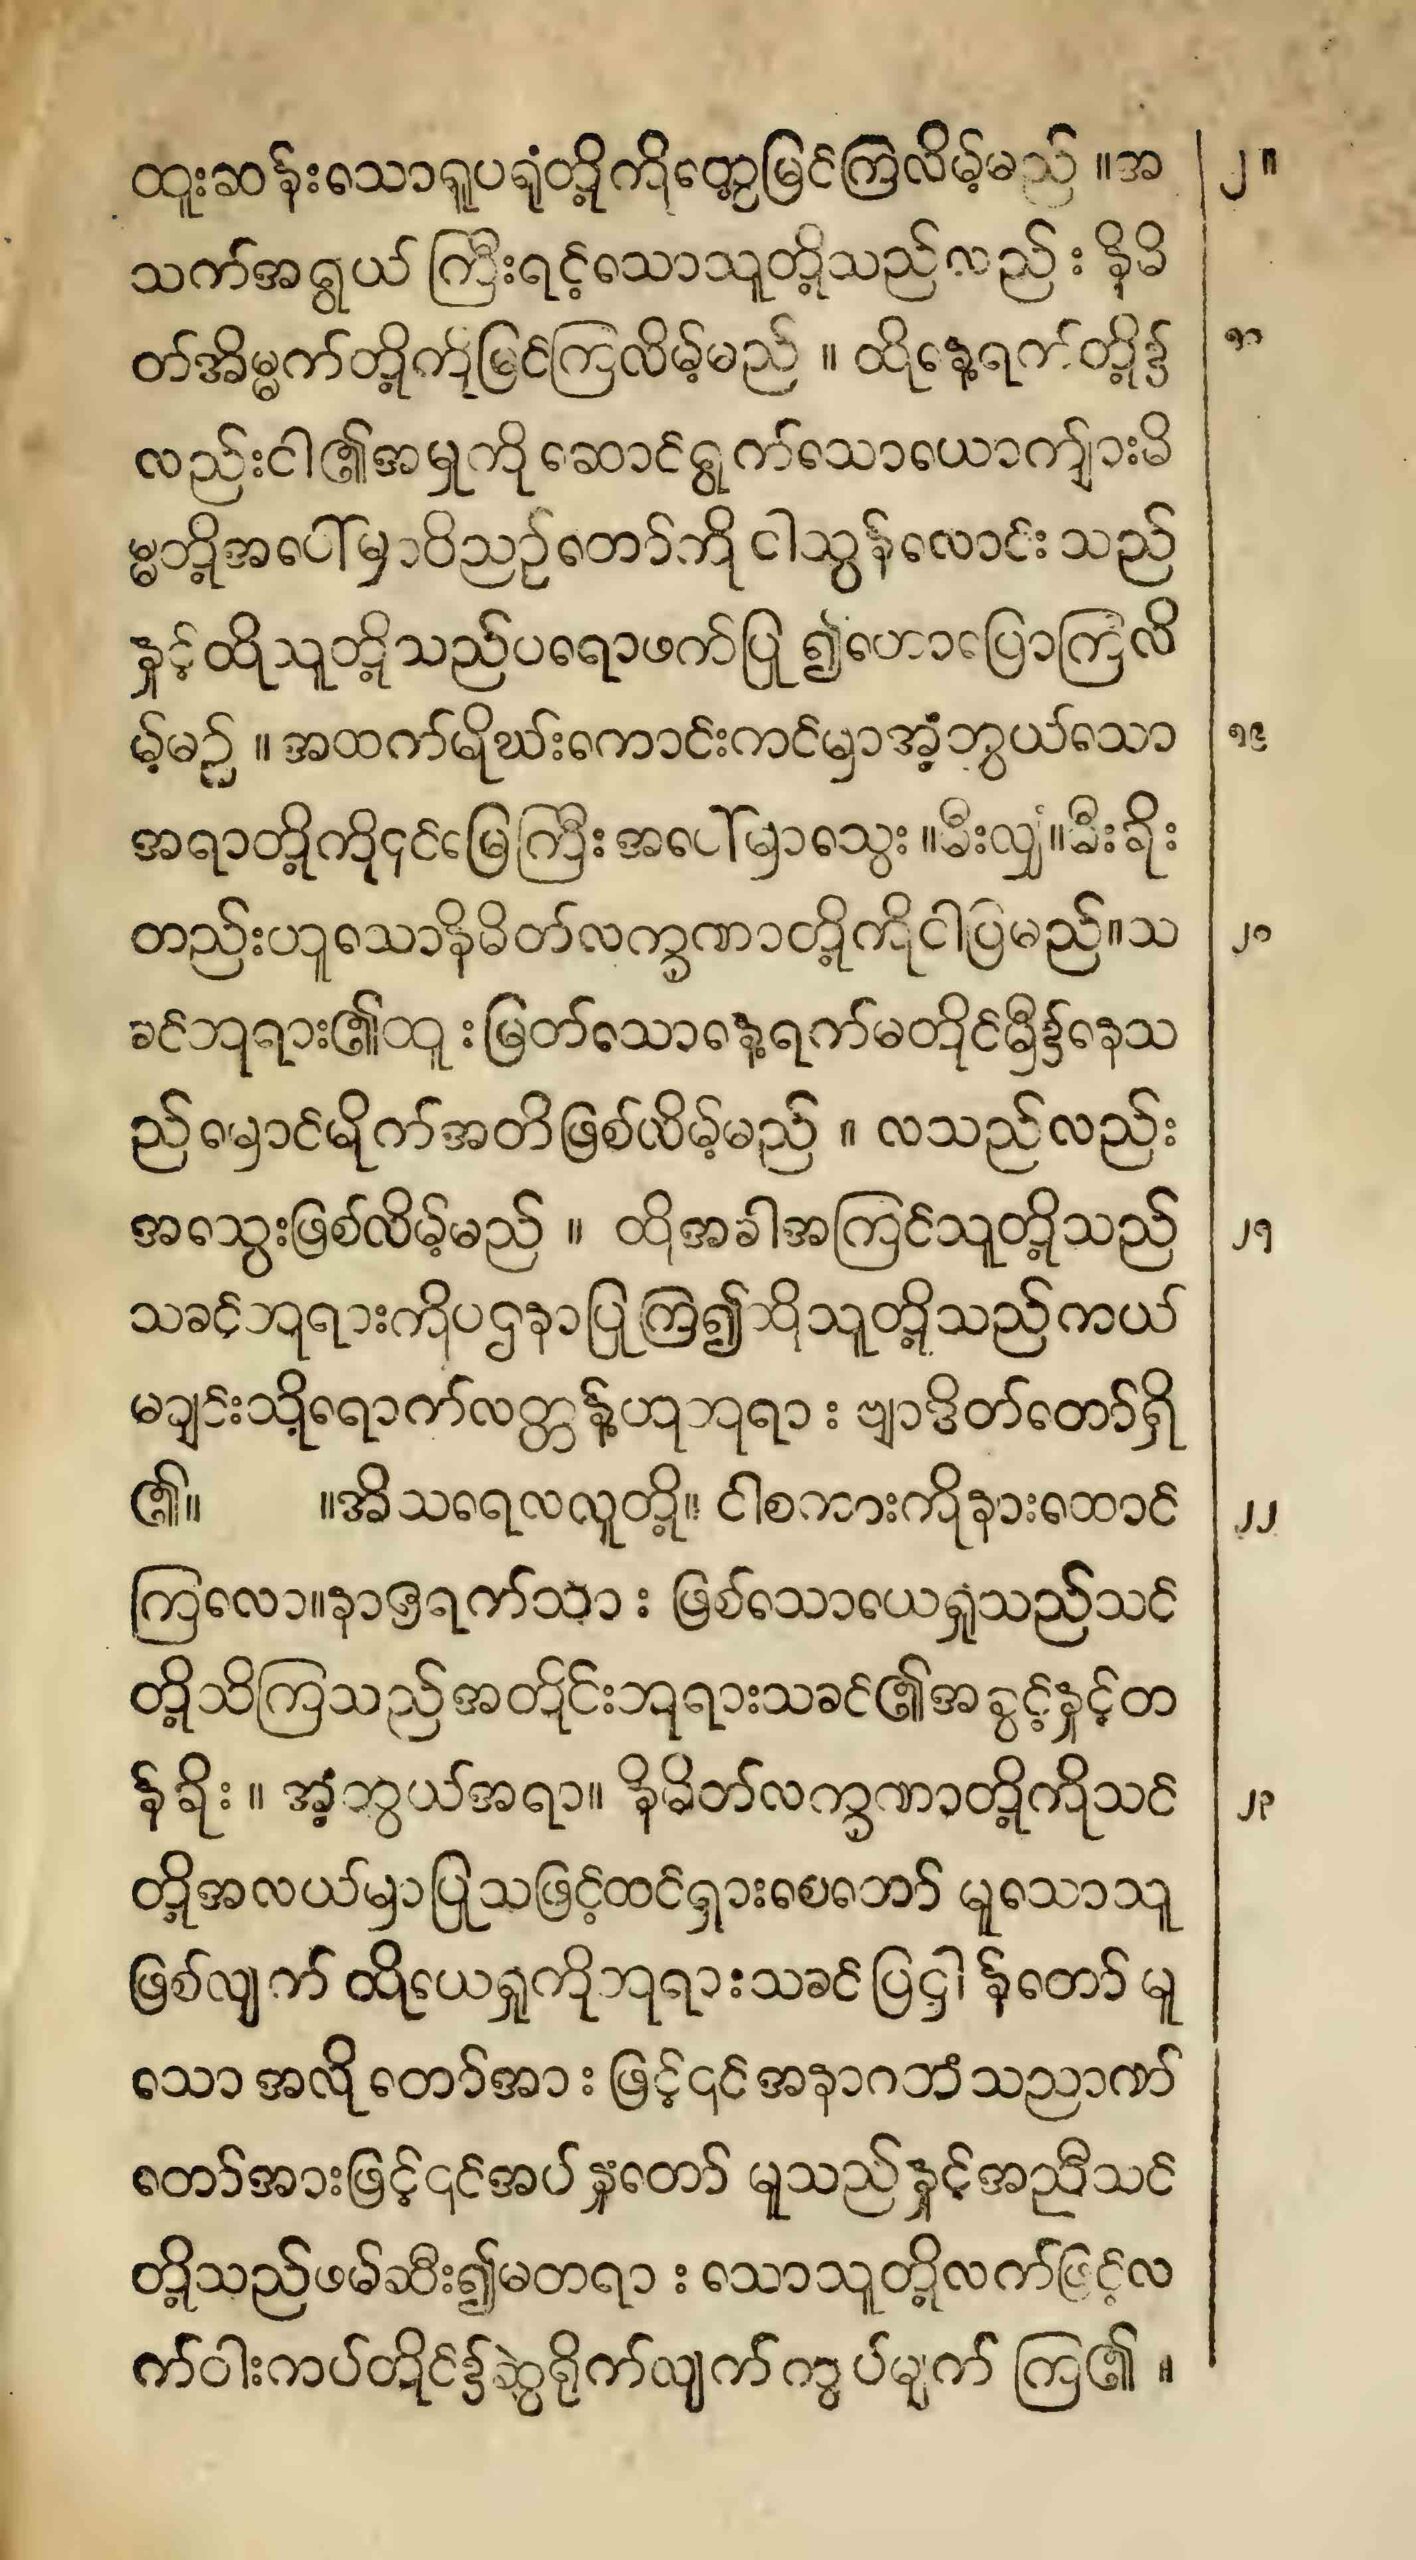 ထူးဆန်းသောရူပရုံတို့ကိုတွေ့မြင်ကြလိမ့်မည် ။အ ၂။
သက်အရွယ် ကြီးရင့်သောသူတို့သည်လည်း နိမိ
တ်အိမ္မက်တို့ကိုမြင်ကြလိမ့်မည် ။ ထိုနေ့ရက်တို့၌ ၁၈
လည်းငါ၏အမှုကို ဆောင်ရွက်သောယောက်ျားမိ
မ္မတို့အပေါ်မှာဝိညဉ်တော်ကို ငါသွန်လောင်း သည်
နှင့်ထိုသူတို့သည်ပရောဖက်ပြု ၍ဟောပြောကြလိ
မ့်မည် ။ အထက်မိုဃ်းကောင်းကင်မှာအံ့ဘွယ်သော ၁၉
အရာတို့ကို၎င်မြေကြီး အပေါ်မှာသွေး ။မီးလျှံ။မီးခိုး
တည်းဟူသောနိမိတ်လက္ခဏာတို့ကိုငါပြမည်။သ ၂၀
ခင်ဘုရား၏ထူး မြတ်သောနေ့ရက်မတိုင်မှီ၌နေသ
ည်မှောင်မိုက်အတိဖြစ်လိမ့်မည် ။ လသည်လည်း
အသွေးဖြစ်လိမ့်မည် ။ ထိုအခါအကြင်သူတို့သည် ၂၁
သခင်ဘုရားကိုပဌနာပြုကြ၍ထိုသူတို့သည်ကယ်
မချင်းသို့ရောက်လတ္တန့်ဟုဘုရား ဗျာဒိတ်တော်ရှိ
၏။ ။အိသရေလလူတို့။ ငါစကားကိုနားထောင် ၂၂
ကြလော။နာဇရက်သား ဖြစ်သောယေရှုသည်သင်
တို့သိကြသည်အတိုင်းဘုရားသခင်၏အခွင့်နှင့်တ
န်ခိုး ။ အံ့ဘွယ်အရာ။ နိမိတ်လက္ခဏာတို့ကိုသင် ၂၃
တို့အလယ်မှာပြုသဖြင့်ထင်ရှားစေတော် မူသောသူ
ဖြစ်လျက် ထိုယေရှုကိုဘုရားသခင်ပြဋ္ဌါန်တော် မူ
သော အလိုတော်အား ဖြင့်၎င်အနာဂတံသညာဏ်
တော်အားဖြင့်၎င်အပ်နှံတော် မူသည်နှင့်အညီသင်
တို့သည်ဖမ်ဆီး၍မတရား သောသူတို့လက်ဖြင့်လ
က်ဝါးကပ်တိုင်၌ဆွဲရိုက်လျက်ကွပ်မျက် ကြ၏ ။